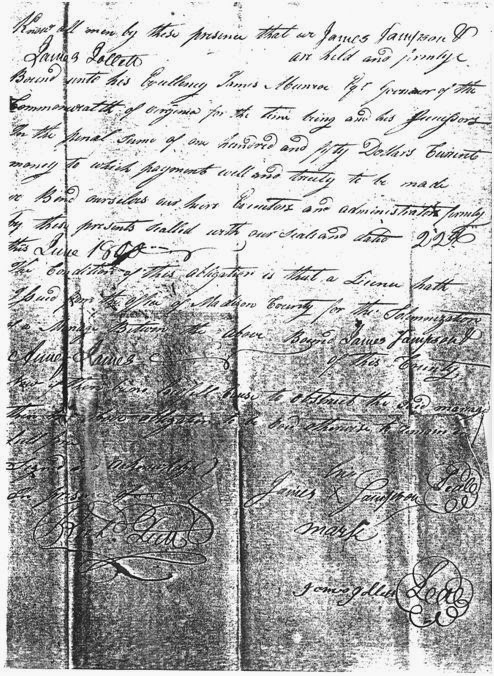 Know all men by these presence that we James Sampson &
James Jollett are held and firmly
Bound unto his Excellency James Munroe Esqr Governor of the
Commonwealth of virginia for the time being and his Successors
In the penal Sum of one hundred and fifty Dollars Current
money to which payment well and truely to be made
we Bind ourselves our heirs Executors and administrators firmly
by these presents sealled with our Seals and dated 22th
this June 1800
The Condition of this obligation is that a Licence hath
Issued from the office of Madison County for the Solemnization
of a Marriage Between the above Bound James Sampson &
James
of this County,
Now if there be no cause to obstruct the said marriage
then the above obligation to be void otherwise to remain in
full
Signed & acknowledged
in presence of
his
James X Sampson Seal
mark
James Jollett Seal